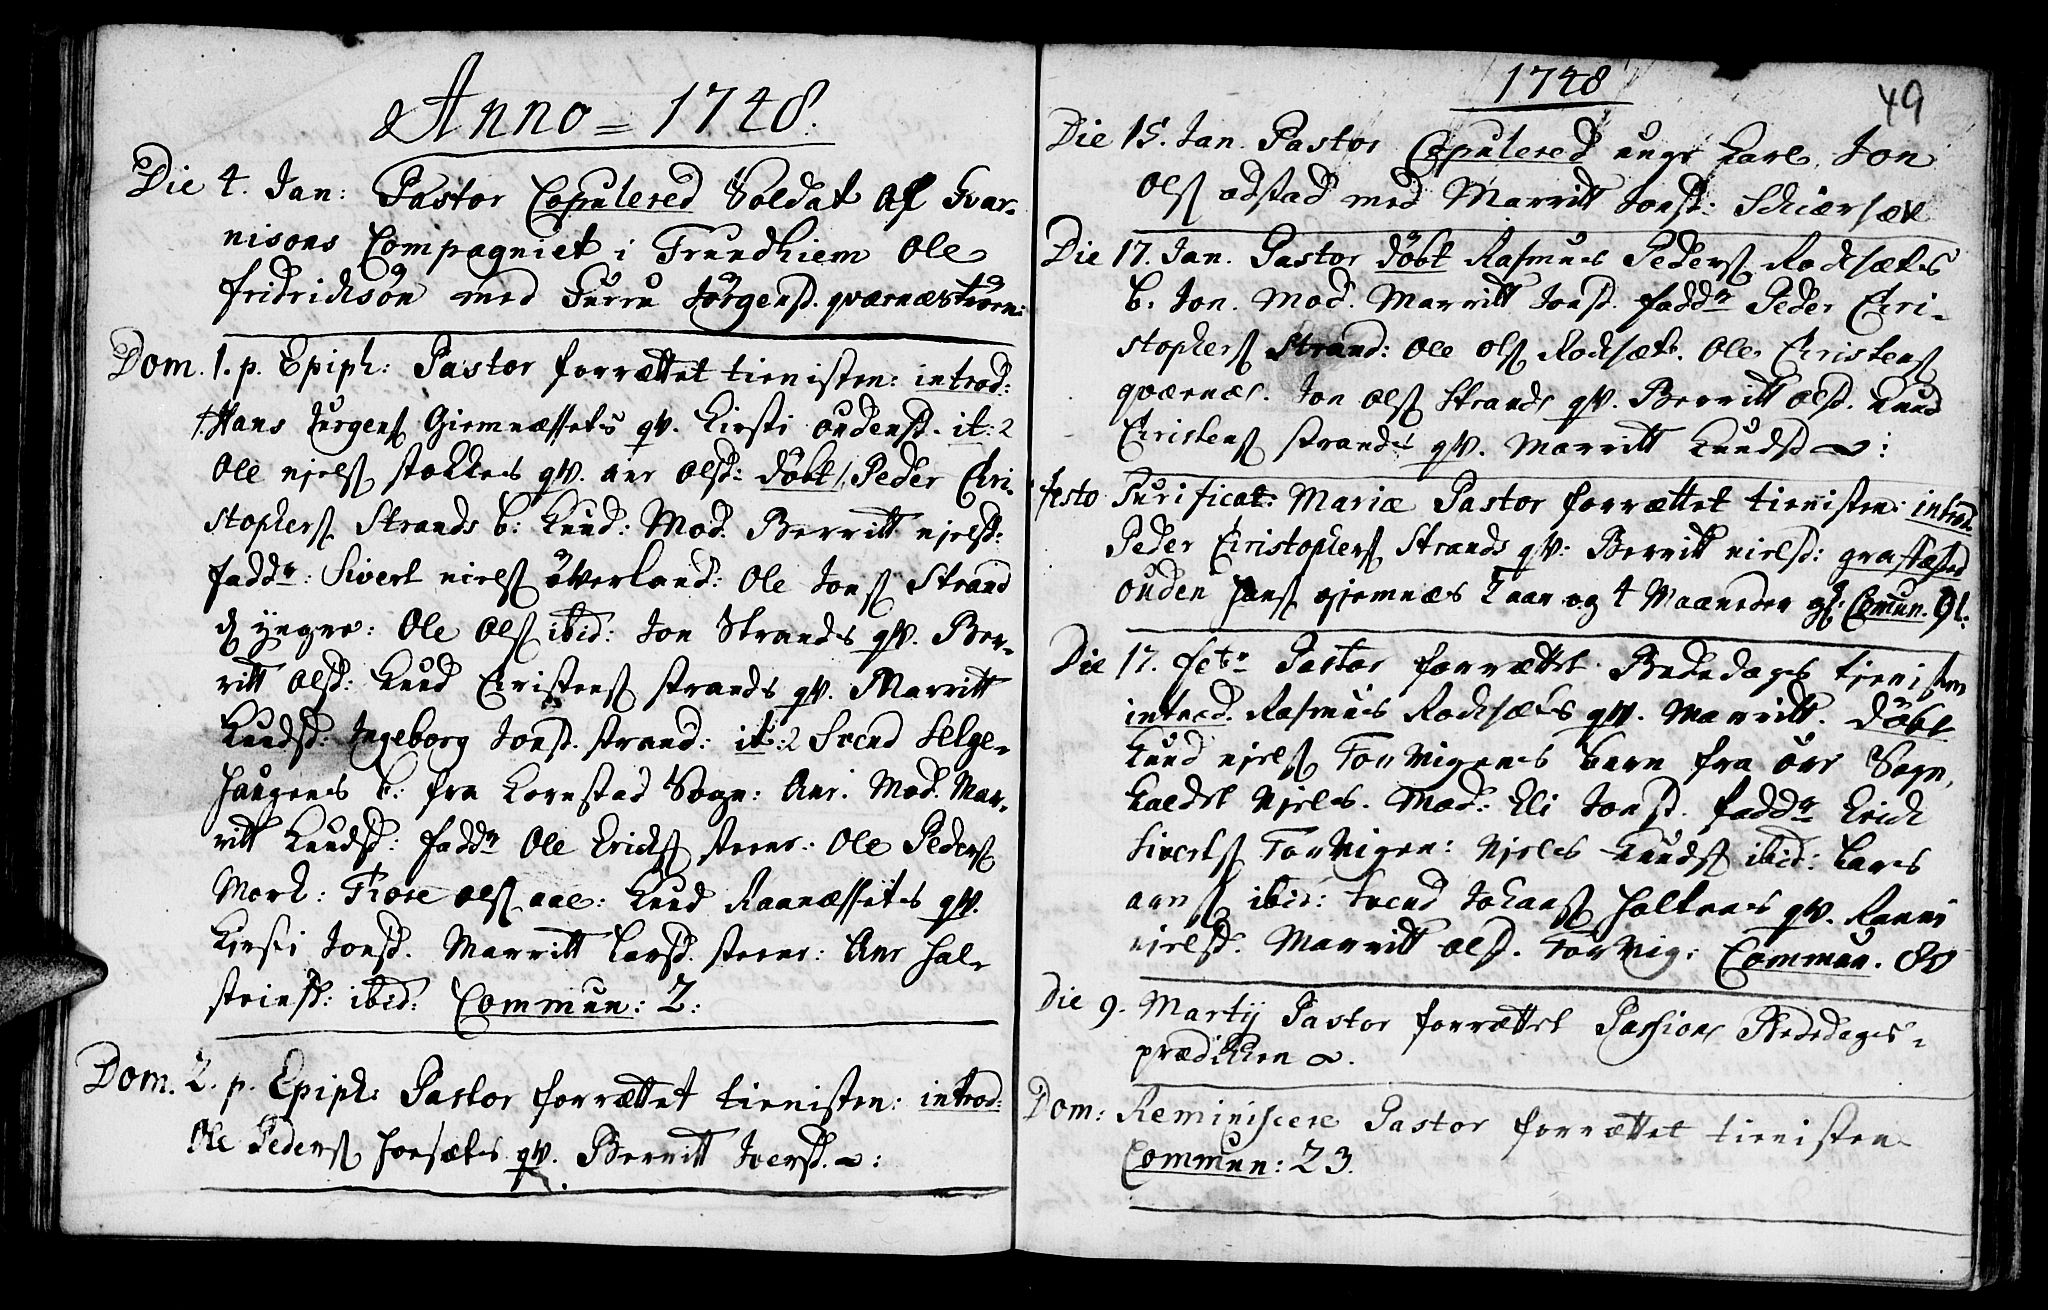 Anno = 1748.
Die 4. Jan: Pastor Copulered Soldat Af Gvar-
nisons Compagniet i Trundhiem Ole
fridrichsøn med Jørgensd. qværnæs
Dom. 1. p. Epiph: Pastor forrættet tienisten: introd:
Hans Jurgens Giemnæssets qv. Kirsti oudensd. it: 2
Ole njels stokkes qv. anr olsd: Døbt Peder Chri-
stophers Strands b: Knud: Mod. Berritt njelsd:
fadd: Sivert niels överland: Ole Jons Strand
d yngre: Ole Ols ibid: Jon Strands qv. Ber-
ritt olsd: Knud Christens strands qv. Marritt
Knudsd: Ingeborg Jonsd. strand: it: 2 Svend Helge-
haugens b: fra Kornstad Sogn: Anr. Mod. Mar-
ritt Knudsd: fadd Ole Erichs steene: Ole Peders
Mork: Tore ols aae: Knud Raanæssets qv.
Kirsti Jonsd. Marritt Larsd. steene: Anr Hal-
steinsd: ibid: Commun: 2:
Dom. 2. p. Epiph: Pastor forrættet tienisten: introd:
Ole Peders hoesæts qv. Berritt Iversd.
1748
49
Die 15. Jan Pastor Copulered unge Karl, Jon
Ols ødstad med Marritt Jonsd: Schiersæt
Die 17. Jan. Pastor döbt Rasmus Peders Rodsæts
b: Jon. Mod. Marritt Jonsd. fadd Peder Chri-
stophers Strand: Ole ols Rodsæt. Ole Christens
qværnæs. Jon ols Strands qv. Berritt olsd. Knud
Christens strands qv. Marritt Knudsd
festo Purificat: Mariæ Pastor forrættet tienisten: introd.
Peder Christophers Strands qv: Berritt nielsd: grafsæsted
ouden Hans gjemnæs aar og 4 Maaneder gl: Commun. 91:
Die 17. febr Pastor forrættet Bededags tjenisten
introd. Rasmus Rodsæts qv. Marritt. Döbt
Knud njels Torvigens barn fra öre Sogn,
kaldet Njels. Mod: Eli Jonsd. fadd Erich
Siverts Torvigen: Njels Knuds ibid: Lars
arns ibid: Svend Johans Holtens qv. Ranni
njelsd. Marritt olsd. Torvig: Commun. 80
Die 9. Martij Pastor forrættet Passions Bededags-
prædikken
Dom: Reminiscere Pastor forrættet tienisten
Commun: 23.